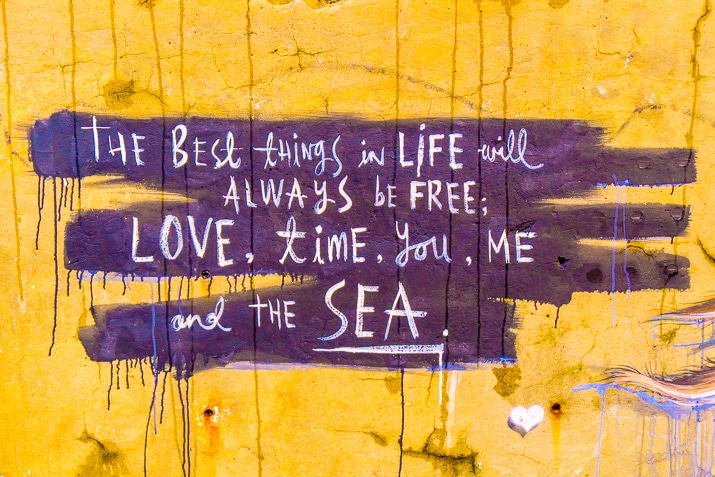 THE BEST tHINGS iN LiFE will
ALWAYS bE FREE;
LOVE, tiME, you, ME
and THE SEA.